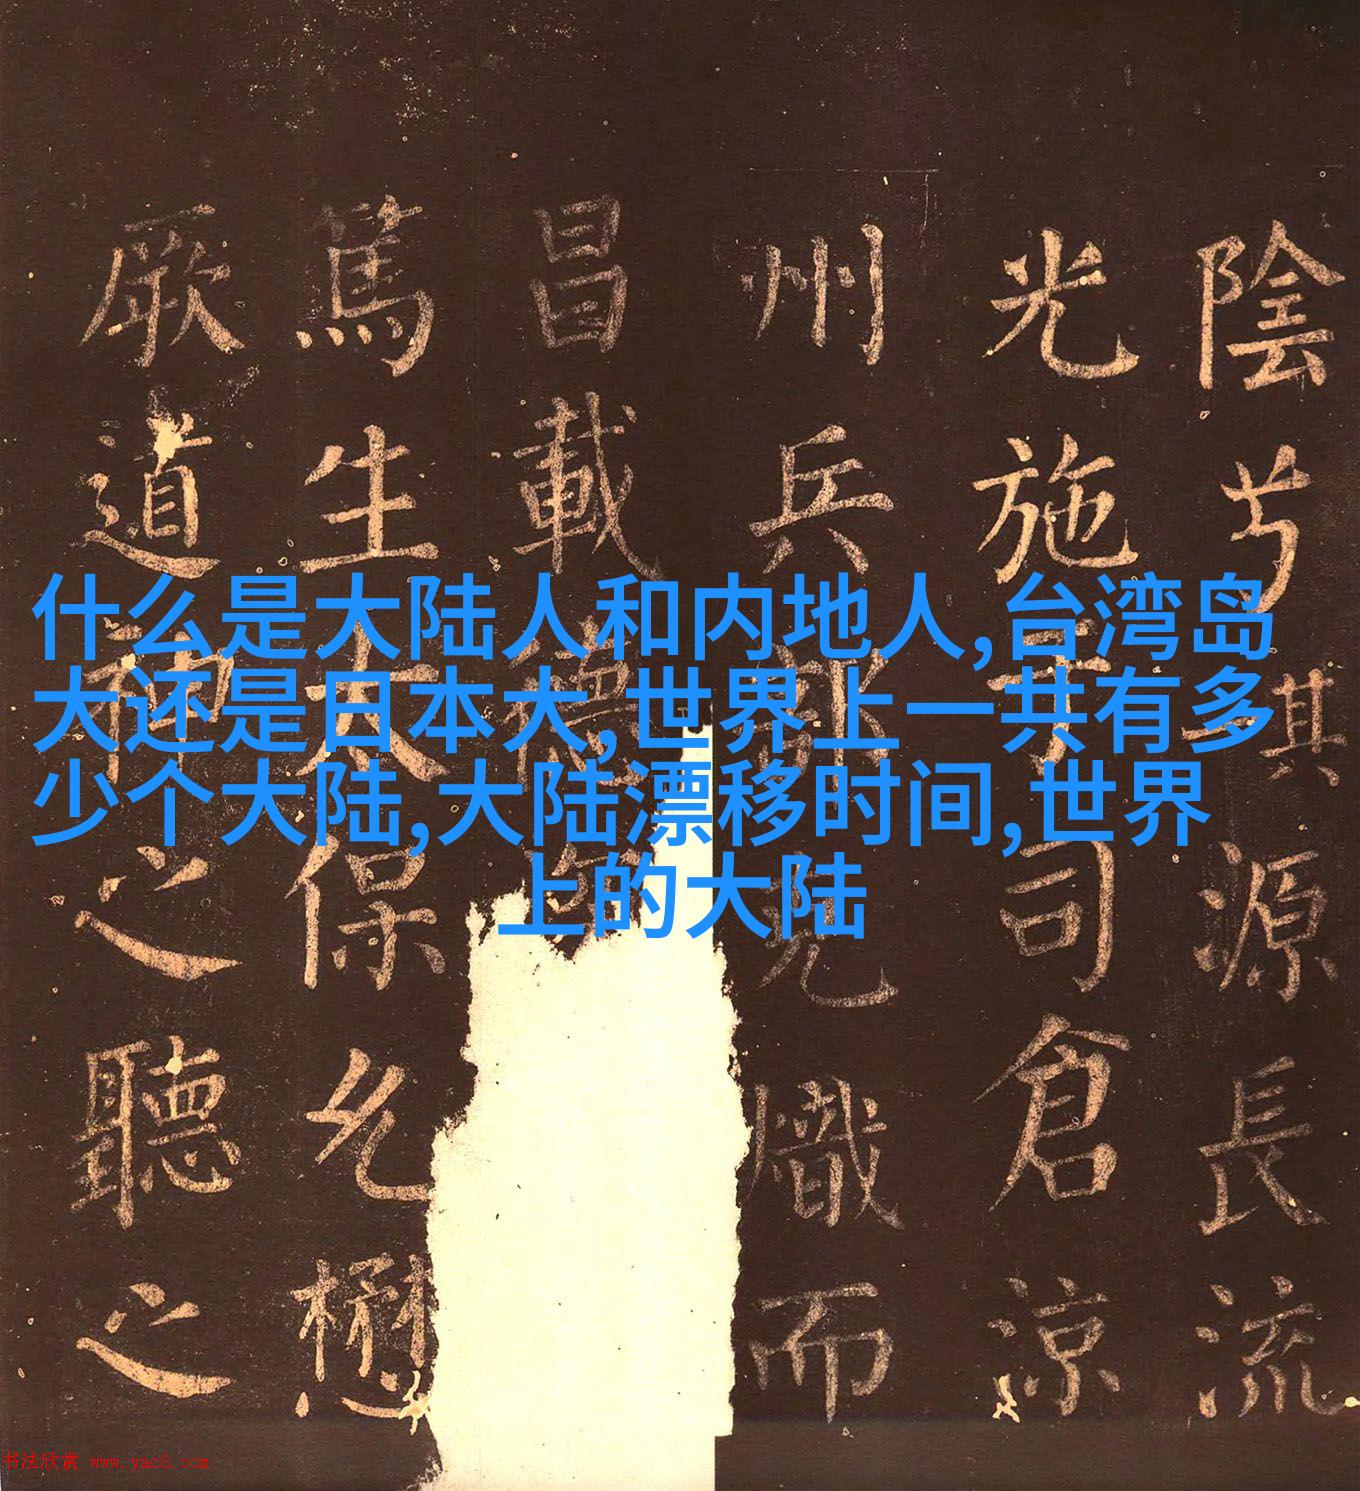 什么是大陆人和内地人,台湾岛
大还是日本大,世界上一共有多
少个大陆,大陆漂移时间,世界
上的大陆
陰其源長流
光施司倉涼
州兵郎光熾而
昌載德
篤生太保允懋
厥道神之聽之
书法欣赏 www.yac8.com